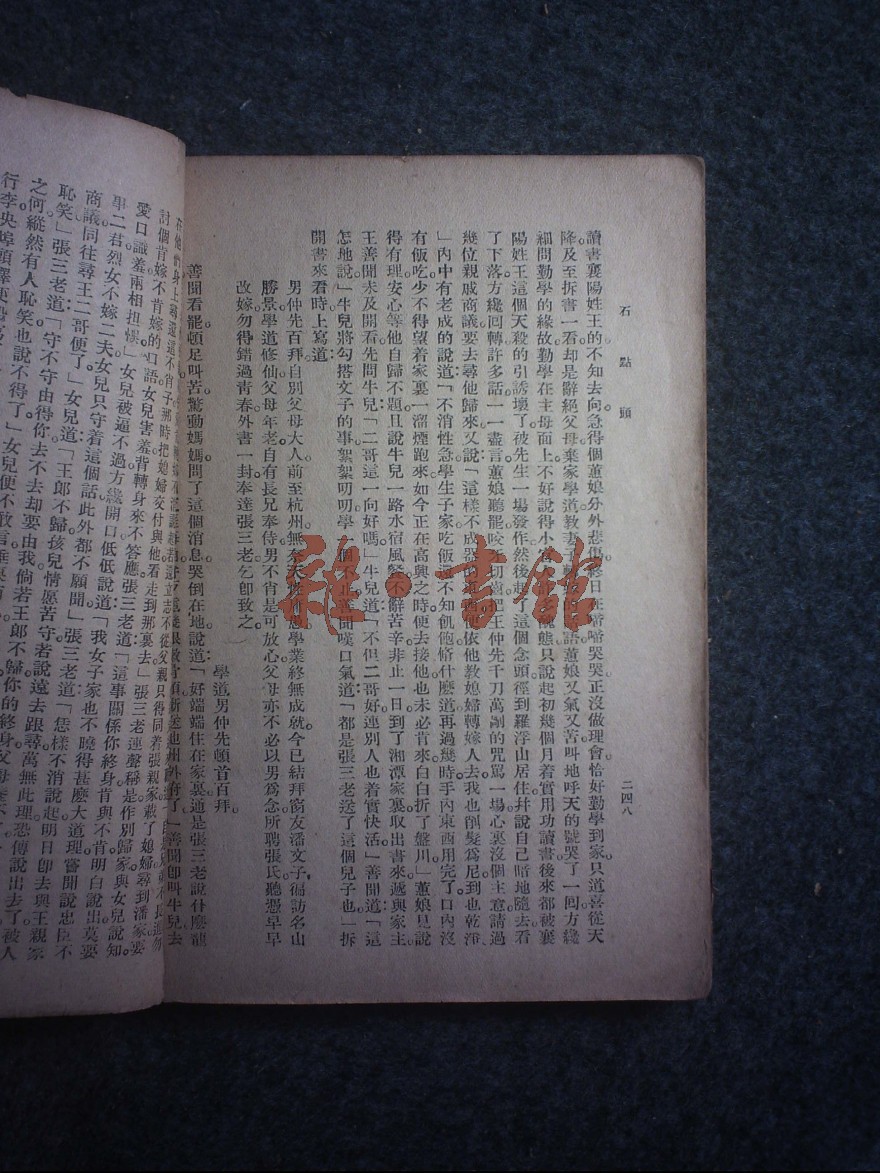 石點頭
二四八
讀書襄陽姓王的不知去向急得個蕙娘分外悲傷終日在啼啼哭哭正沒做理會恰好勤學到家只道喜從天
降及至拆書一看却是辭絕父母棄家學道教妻子轉嫁的話語蕙娘又氣又苦叫地呼天的號哭了一囘方纔
細問勤學的緣故勤學在主母面上不好說得小官醜態只說起初幾個月着實用功讀書後來都被襄
陽姓王這個天殺的引誘壞了被先生一場發作然後起了這個念頭徑到羅浮山居住幷說自己暗地隨去看
了下落方纔囘轉許多話一一盡言蕙娘聽罷咬牙切齒把王仲先千刀萬剮的咒罵一場心裏沒個主意請過
幾位親戚商議要去尋他歸來又說「這樣不成器的東西便依他教媳婦轉嫁人去我也削髮爲尼到也乾淨
」內中有老成的說道「不消性急學生子家吃飯還不知飢飽脩什麼道再過幾時手內東西用完了口內沒
有飯吃少不得望着家裏一溜煙跑來如今正在高興之時便去接他也未必肯來白白折了盤川」蕙娘見說
得有理安心等他自歸不題且說牛兒一路水宿風餐不辭苦辛非止一日到了湘潭家裏取出書來遞與家主
王善聞未及開看先問牛兒「二哥這一向好嗎」牛兒道「不但二哥好連別人也着實快活」善聞道「這
怎地說」牛兒將勾搭文子的事絮絮叨叨學一個不止善聞嘆口氣道「都是張三老送了這個兒子也」拆
開書來看時上寫道
男仲先百拜自別父母大人前至杭州無奈天性愚學業終無成就今已結拜窗友潘文子徧訪名山
勝景學道修仙父母年老自有長兄奉侍男不肖是可放心父母亦不必以男爲念所聘張氏聽憑早早
改嫁勿得錯過青春外書一封奉達張三老乞卽致之
學道男仲先頓首百拜
善聞看罷頓足叫苦驚動媽媽問了這個消息哭倒在地說道「好端端住在家裏通是張三老說什麼
善聞卽叫牛兒去
討個肯嫁不肯嫁的口語女兒害羞背轉身來不答應張三老道「這事關係你終身肯與不肯明白說出莫要
愛口識羞兩相担悞」女兒被逼不過方纔開口低低說道「我女子家也不曉得甚麼大道理嘗聞說忠臣不
事二君烈女不嫁二夫女兒只守着這個話此外都不願聞」張三老道「恁樣不消說起明日卽去與王親家
商議同往尋王二哥便了」女兒道「王郎不歸孩兒情愿苦守若說遠去跟尋萬無此理恐傳說出去了被人
恥笑」張三老道「守不守由得你去不去却要由我倘若王郎不歸你的終身父母
之何縱然有人恥笑也說不得了」女兒便不敢言
行李央埠頭
雜·書館